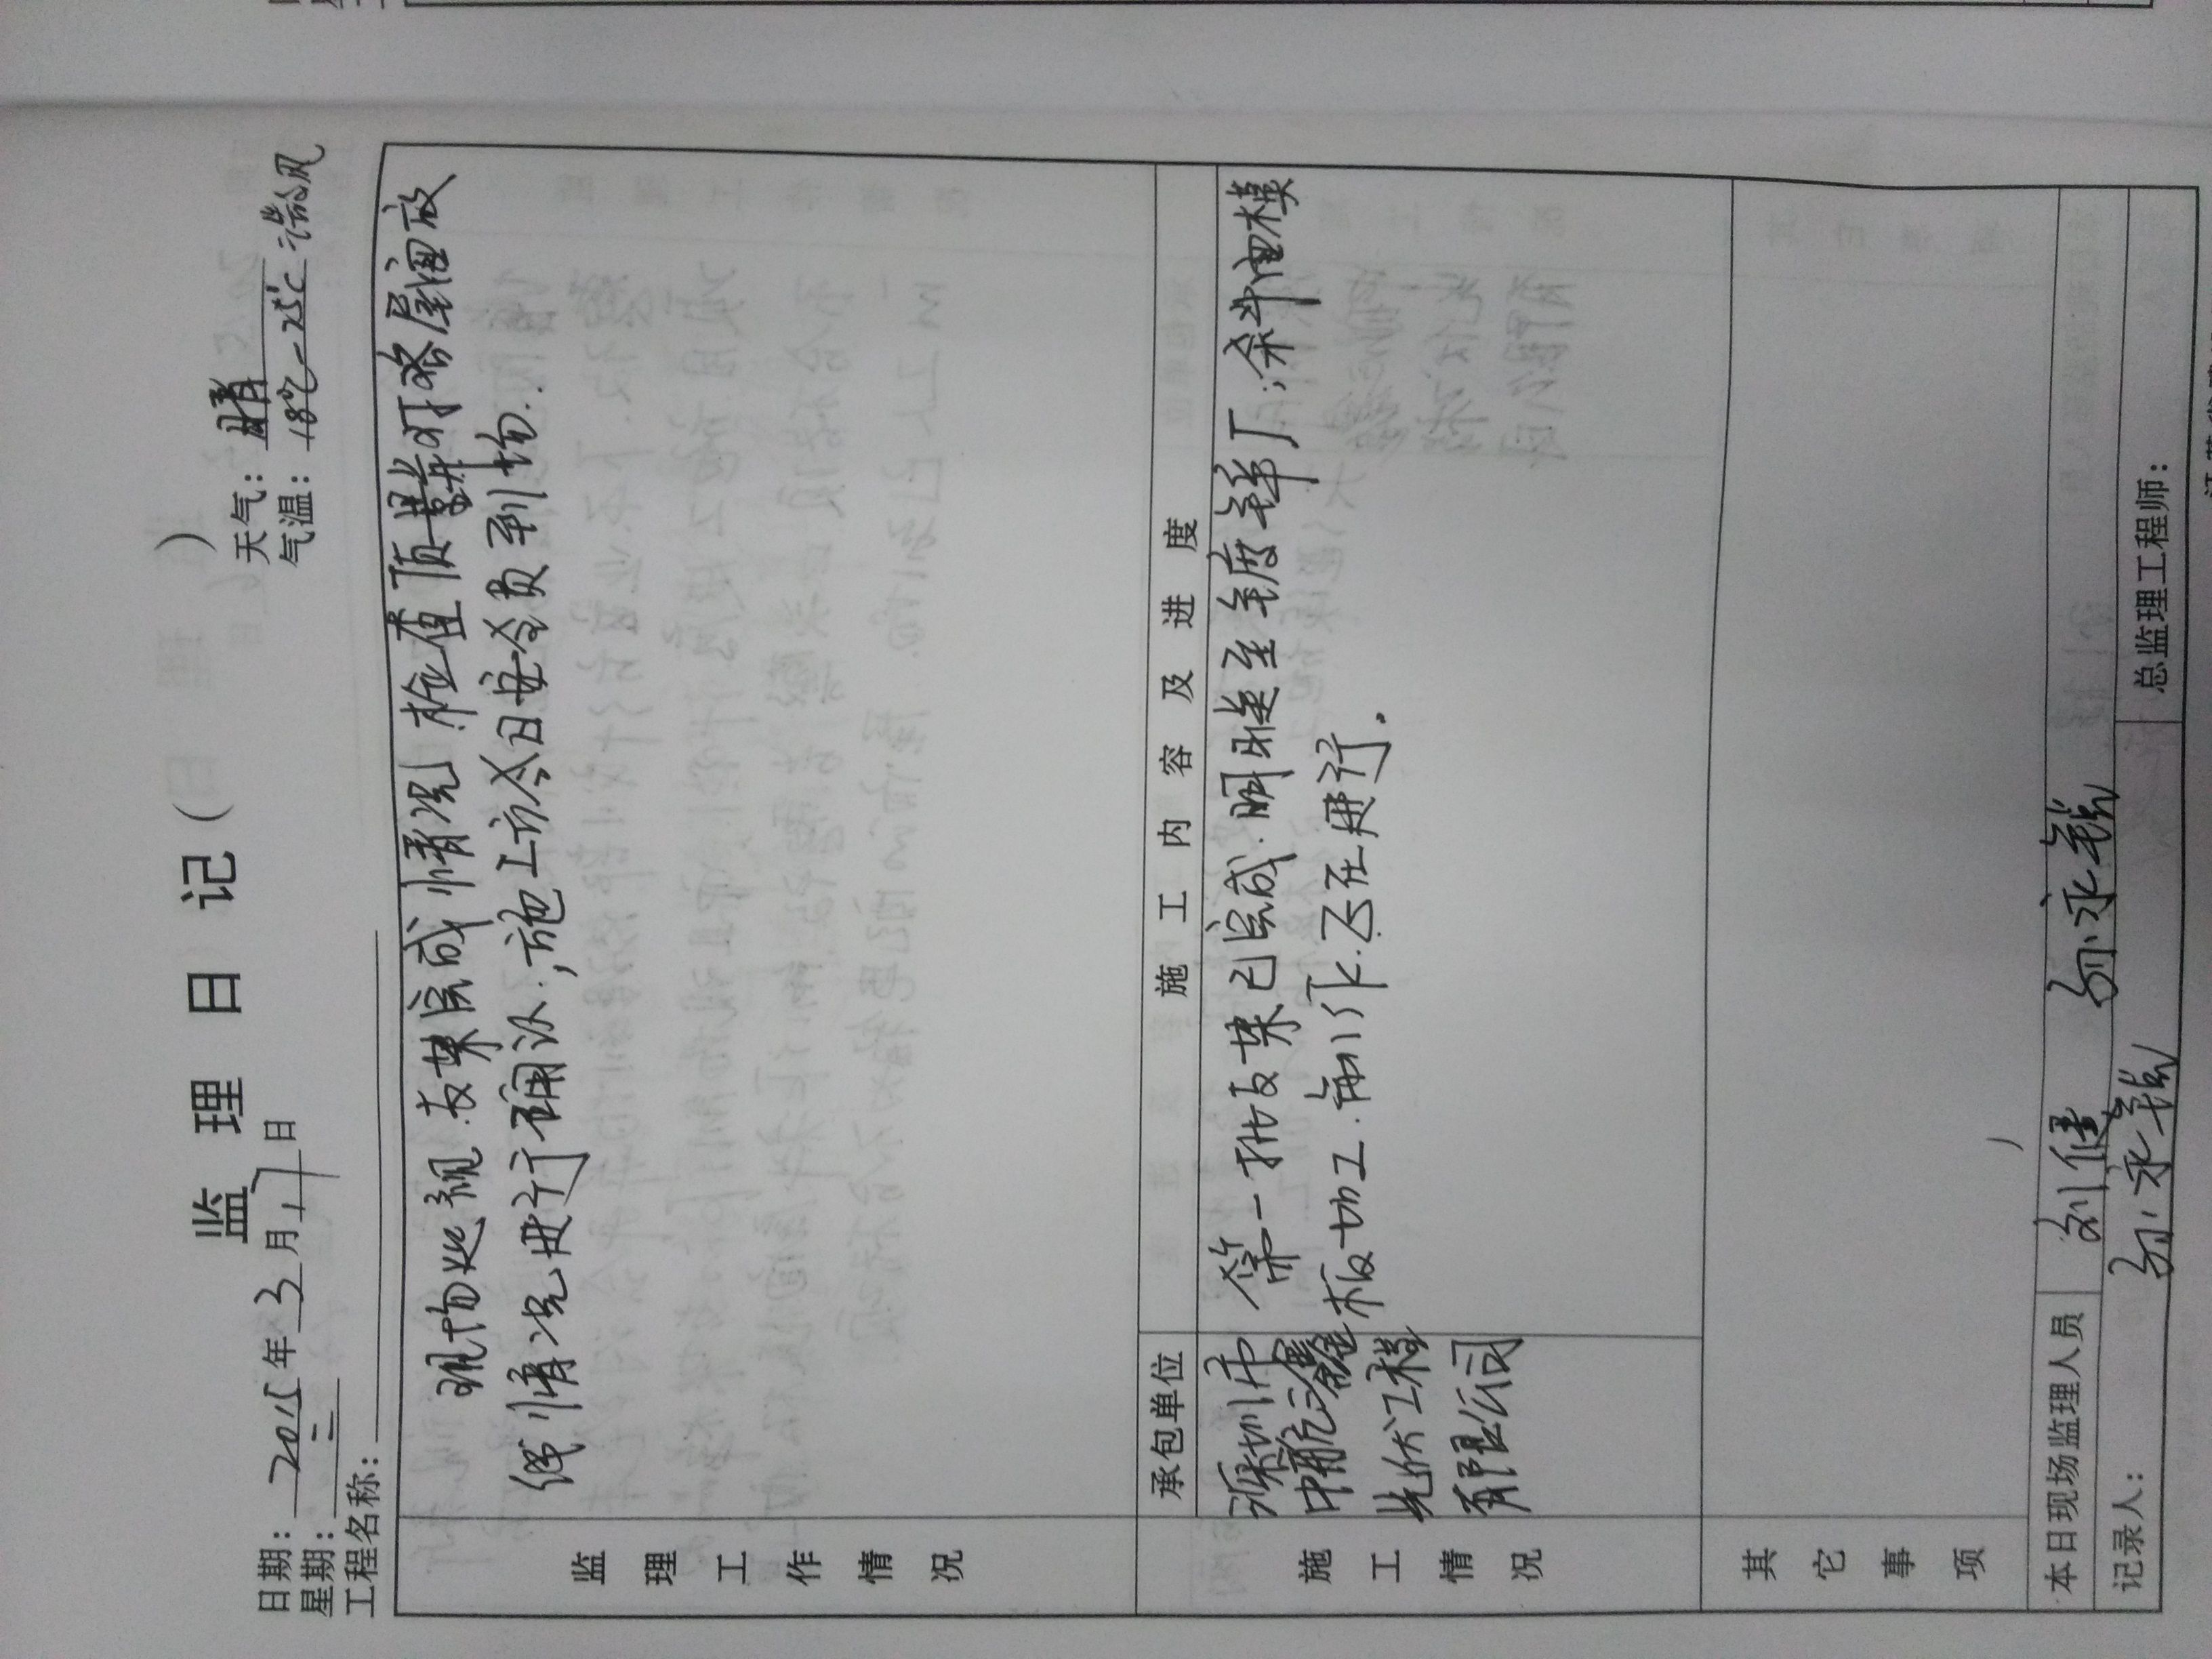 监 理 日 记 ( )
日期: 2015 年 3 月 17 日 天气: 晴
星期: 二 气温: 18℃-25℃ 微风
工程名称:
监理工作情况
现场巡视.支架完成情况,检查顶棚
线情况进行了确认.;施工方今日安全员到场.
承包单位 施工内容及进度
施工情况
深圳市
中航三鑫
光伏工程
有限公司
第一批支架已完成.明日送至镀锌厂;
板切工.制作.还在进行.
其它事项
本日现场监理人员 刘健 孙永
记录人: 孙永 总监理工程师: